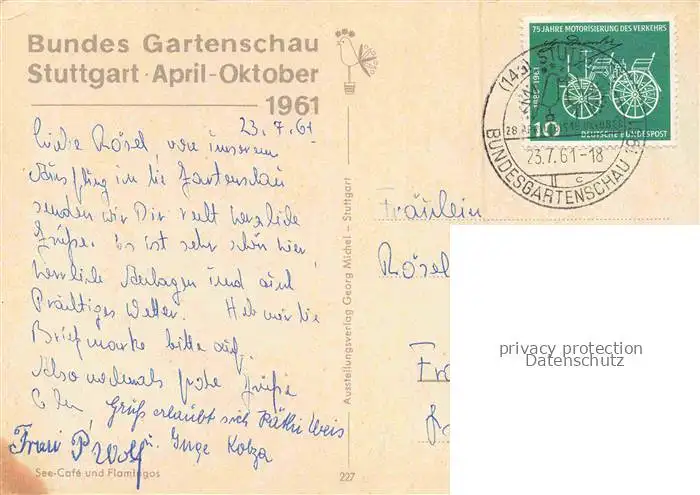 Bundes Gartenschau
Stuttgart · April-Oktober
1961
23.7.61
Liebe Rösel, von unserem
Ausflug in die Gartenschau
senden wir Dir recht herzliche
Grüße. Es ist sehr schön hier,
herrliche Anlagen und auch
Prächtiges Wetter. Heb mir die
Briefmarke bitte auf.
Also nochmals frohe Grüße
Grüß erlaubt sich Käthi Weis
Frau P. Wolf u. Inge Kotza
See-Café und Flamingos
227
Ausstellungsverlag Georg Michel – Stuttgart
75 JAHRE MOTORISIERUNG DES VERKEHRS
1886-1961
10
DEUTSCHE BUNDESPOST
(14a) STUTTGART
23.7.61-18
c
BUNDESGARTENSCHAU 1961
Fräulein
Rösel
privacy protection
Datenschutz